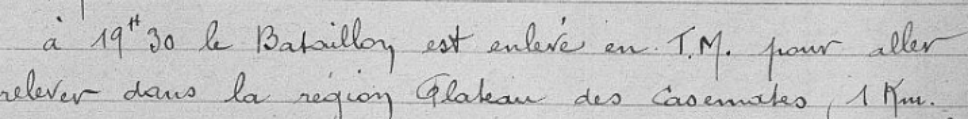 à 19H30 le Bataillon est enlevé en T.M. pour aller
relever dans la région Plateau des Casemates, 1 Km.